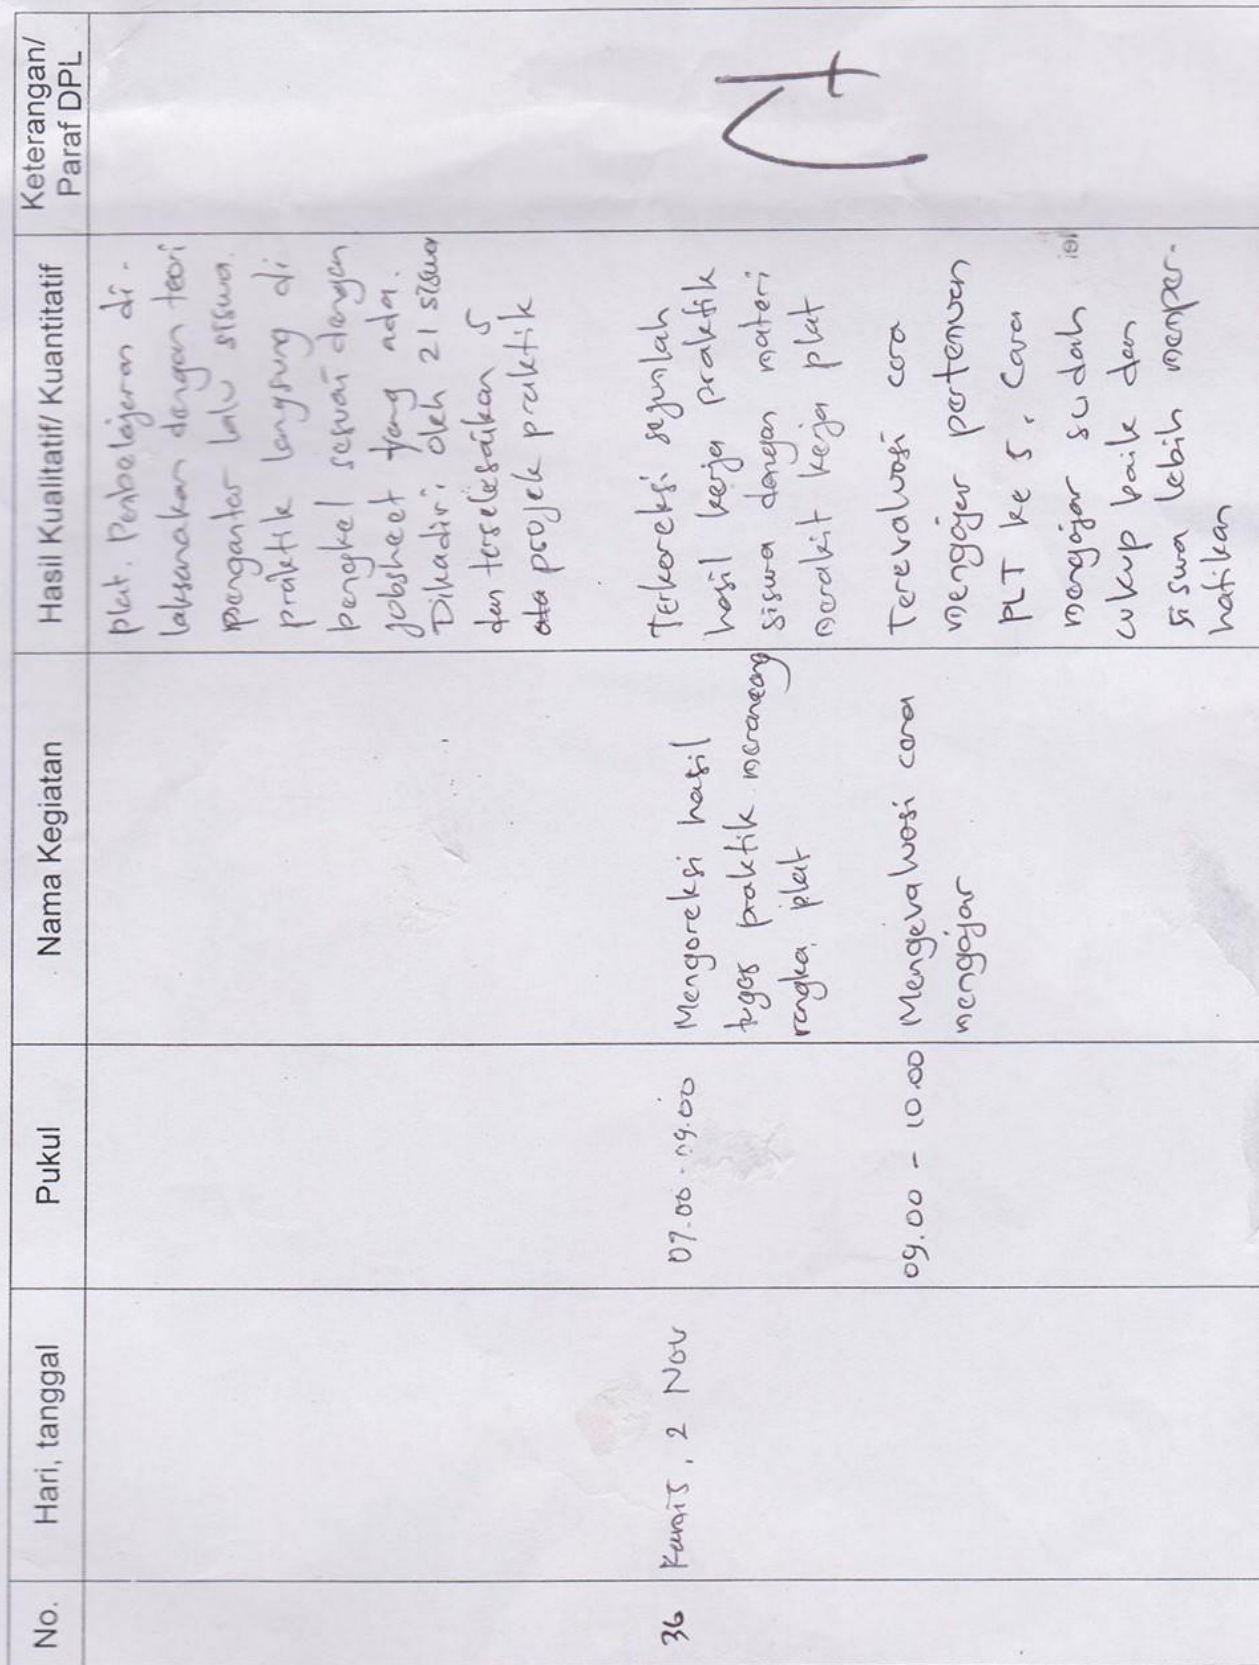 No.
Hari, tanggal
Pukul
Nama Kegiatan
Hasil Kualitatif/ Kuantitatif
Keterangan/
Paraf DPL
plat. Pembelajaran di-
laksanakan dengan teori
pengantar lalu siswa
praktik langsung di
bengkel sesuai dengan
jobsheet yang ada.
Dihadiri oleh 21 siswa
dan terselesaikan 5
projek praktik
36
Kamis, 2 Nov
07.00 - 09.00
Mengoreksi hasil
tugas praktik merancang
rangka plat
Terkoreksi sejumlah
hasil kerja praktik
siswa dengan materi
merakit kerja plat
09.00 - 10.00
Mengevaluasi cara
mengajar
Terevaluasi cara
mengajar pertemuan
PLT ke 5. Cara
mengajar sudah
cukup baik dan
siswa lebih memper-
hatikan